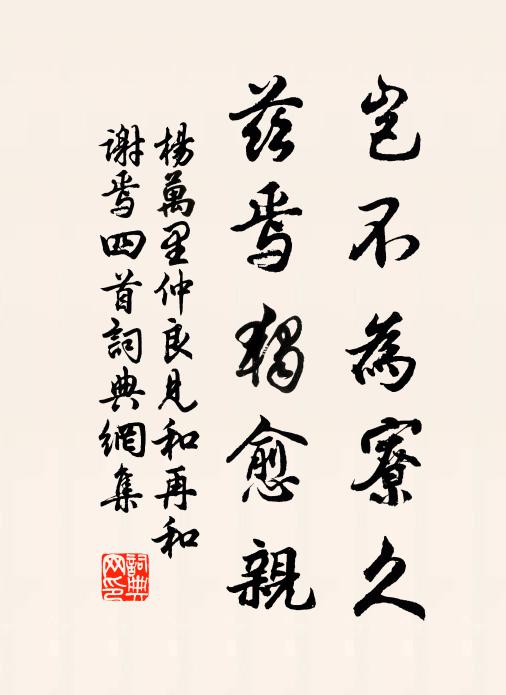 豈不為寮久
茲焉獨愈親
楊萬里仲良見和再和
謝焉四首詞典網集
詞典网印